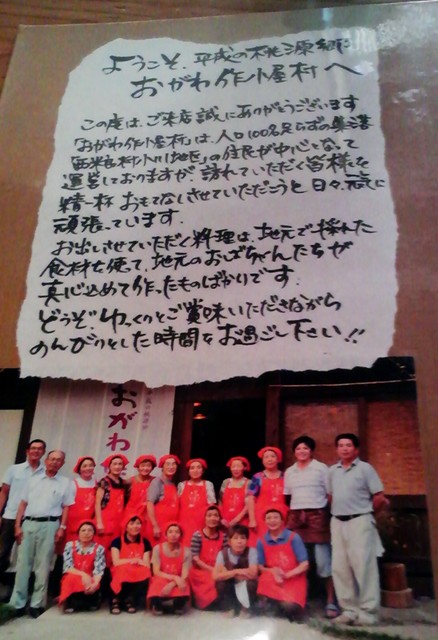 ようこそ、平成の桃源郷
おがわ作小屋村へ
この度は、ご来店誠にありがとうございます
「おがわ作小屋村」は、人口100名足らずの集落
「西米良村小川地区」の住民が中心となって
運営しておりますが、訪れていただく皆様を
精一杯おもてなしさせていただこうと日々、元気に
頑張っています。
お出しさせていただく料理は、地元で採れた
食材を使って、地元のおばちゃんたちが
真心込めて作ったものばかりです。
どうぞ、ゆっくりとご賞味いただきながら
のんびりとした時間をお過ごし下さい!!
おがわ